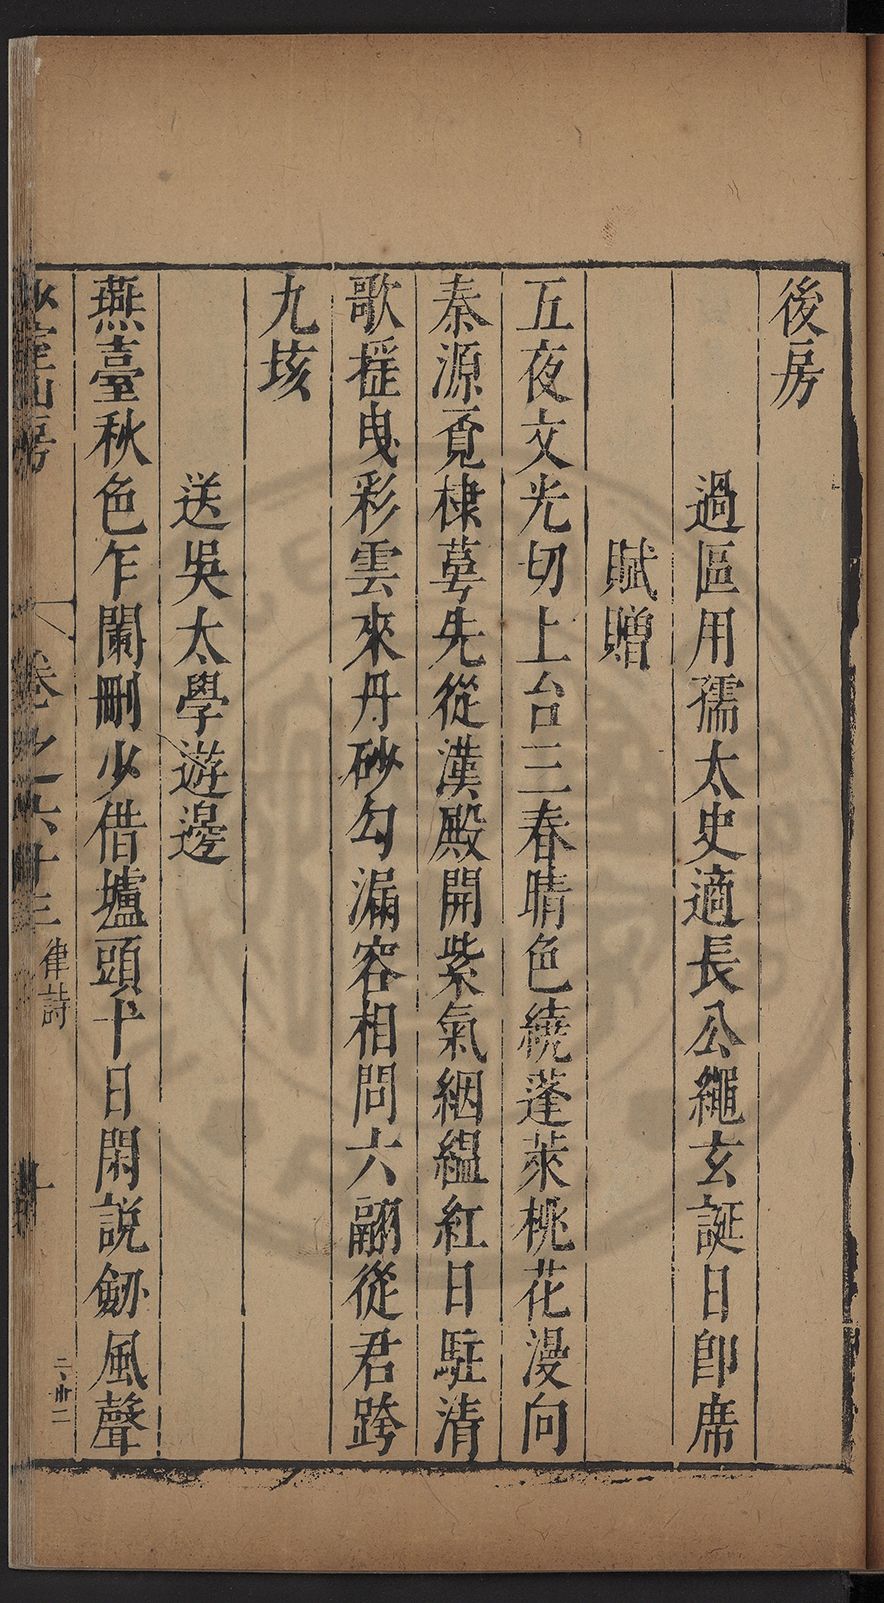 後房
過區用孺太史適長公繩玄誕日卽席
賦贈
五夜文光切上台三春晴色繞蓬萊桃花漫向
秦源覓棣萼先從漢殿開紫氣絪縕紅日駐清
歌搖曳彩雲來丹砂勾漏容相問六翮從君跨
九垓
送吳太學遊邊
燕臺秋色乍闌刪少借壚頭十日閑說劒風聲
山房
卷之六十三
律詩
十
二、卅二